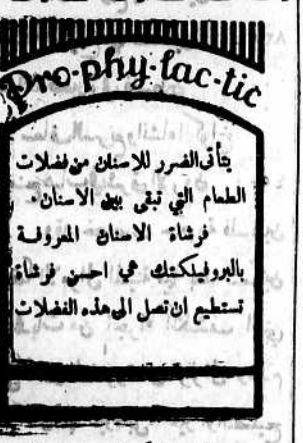 Pro-phy-lac-tic
يتأتى الضرر للاسنان من فضلات
الطعام التي تبقى بين الاسنان .
فرشاة الاسنان المعروفة
بالبروفيلكتك هي احسن فرشاة
تستطيع ان تصل الى هذه الفضلات